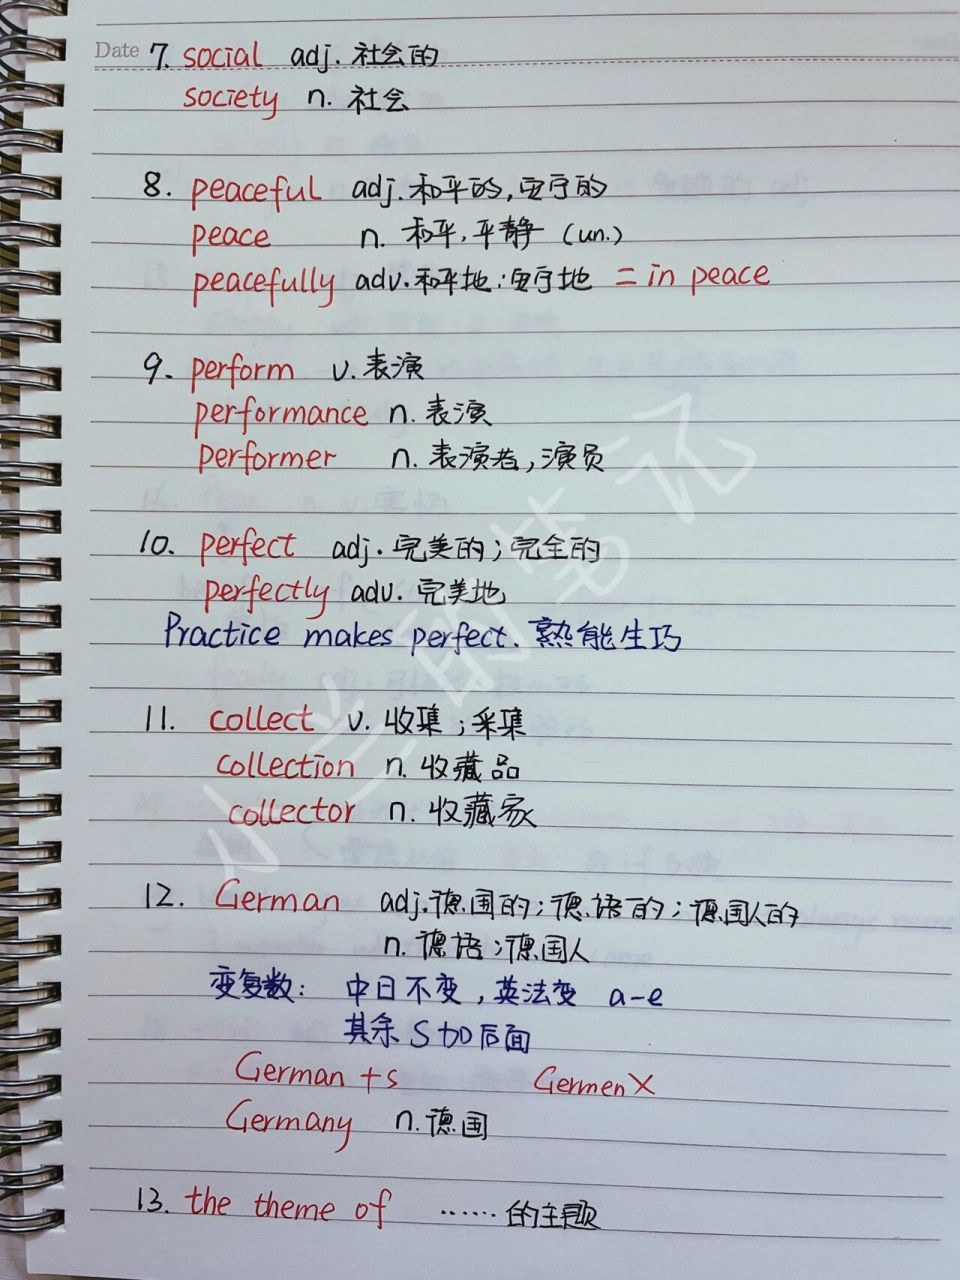 Date 7. social adj. 社会的
society n. 社会
8. peaceful adj. 和平的,安宁的
peace n. 和平,平静 (un.)
peacefully adv. 和平地;安宁地 = in peace
9. perform v. 表演
performance n. 表演
performer n. 表演者,演员
10. perfect adj. 完美的;完全的
perfectly adv. 完美地
Practice makes perfect. 熟能生巧
11. collect v. 收集;采集
collection n. 收藏品
collector n. 收藏家
12. German adj. 德国的;德语的;德国人的
n. 德语;德国人
变复数: 中日不变,英法变 a-e
其余 S 加后面
German +s Germen X
Germany n. 德国
13. the theme of ……的主题